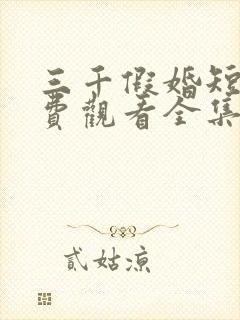 三千假婚短
費觀看全集
貳姑涼